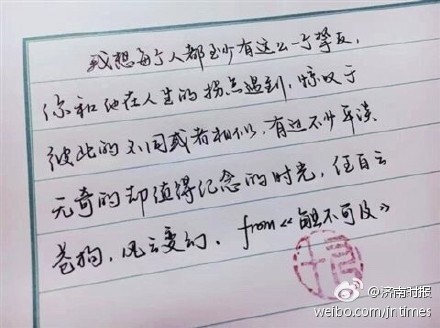 我想每个人都至少有这么一个挚友,
你和他在人生的拐点遇到,惊叹于
彼此的不同或者相似,有过不少平淡
无奇的却值得纪念的时光,任白云
苍狗,风云变幻. from《触不可及》
@济南时报
weibo.com/jntimes